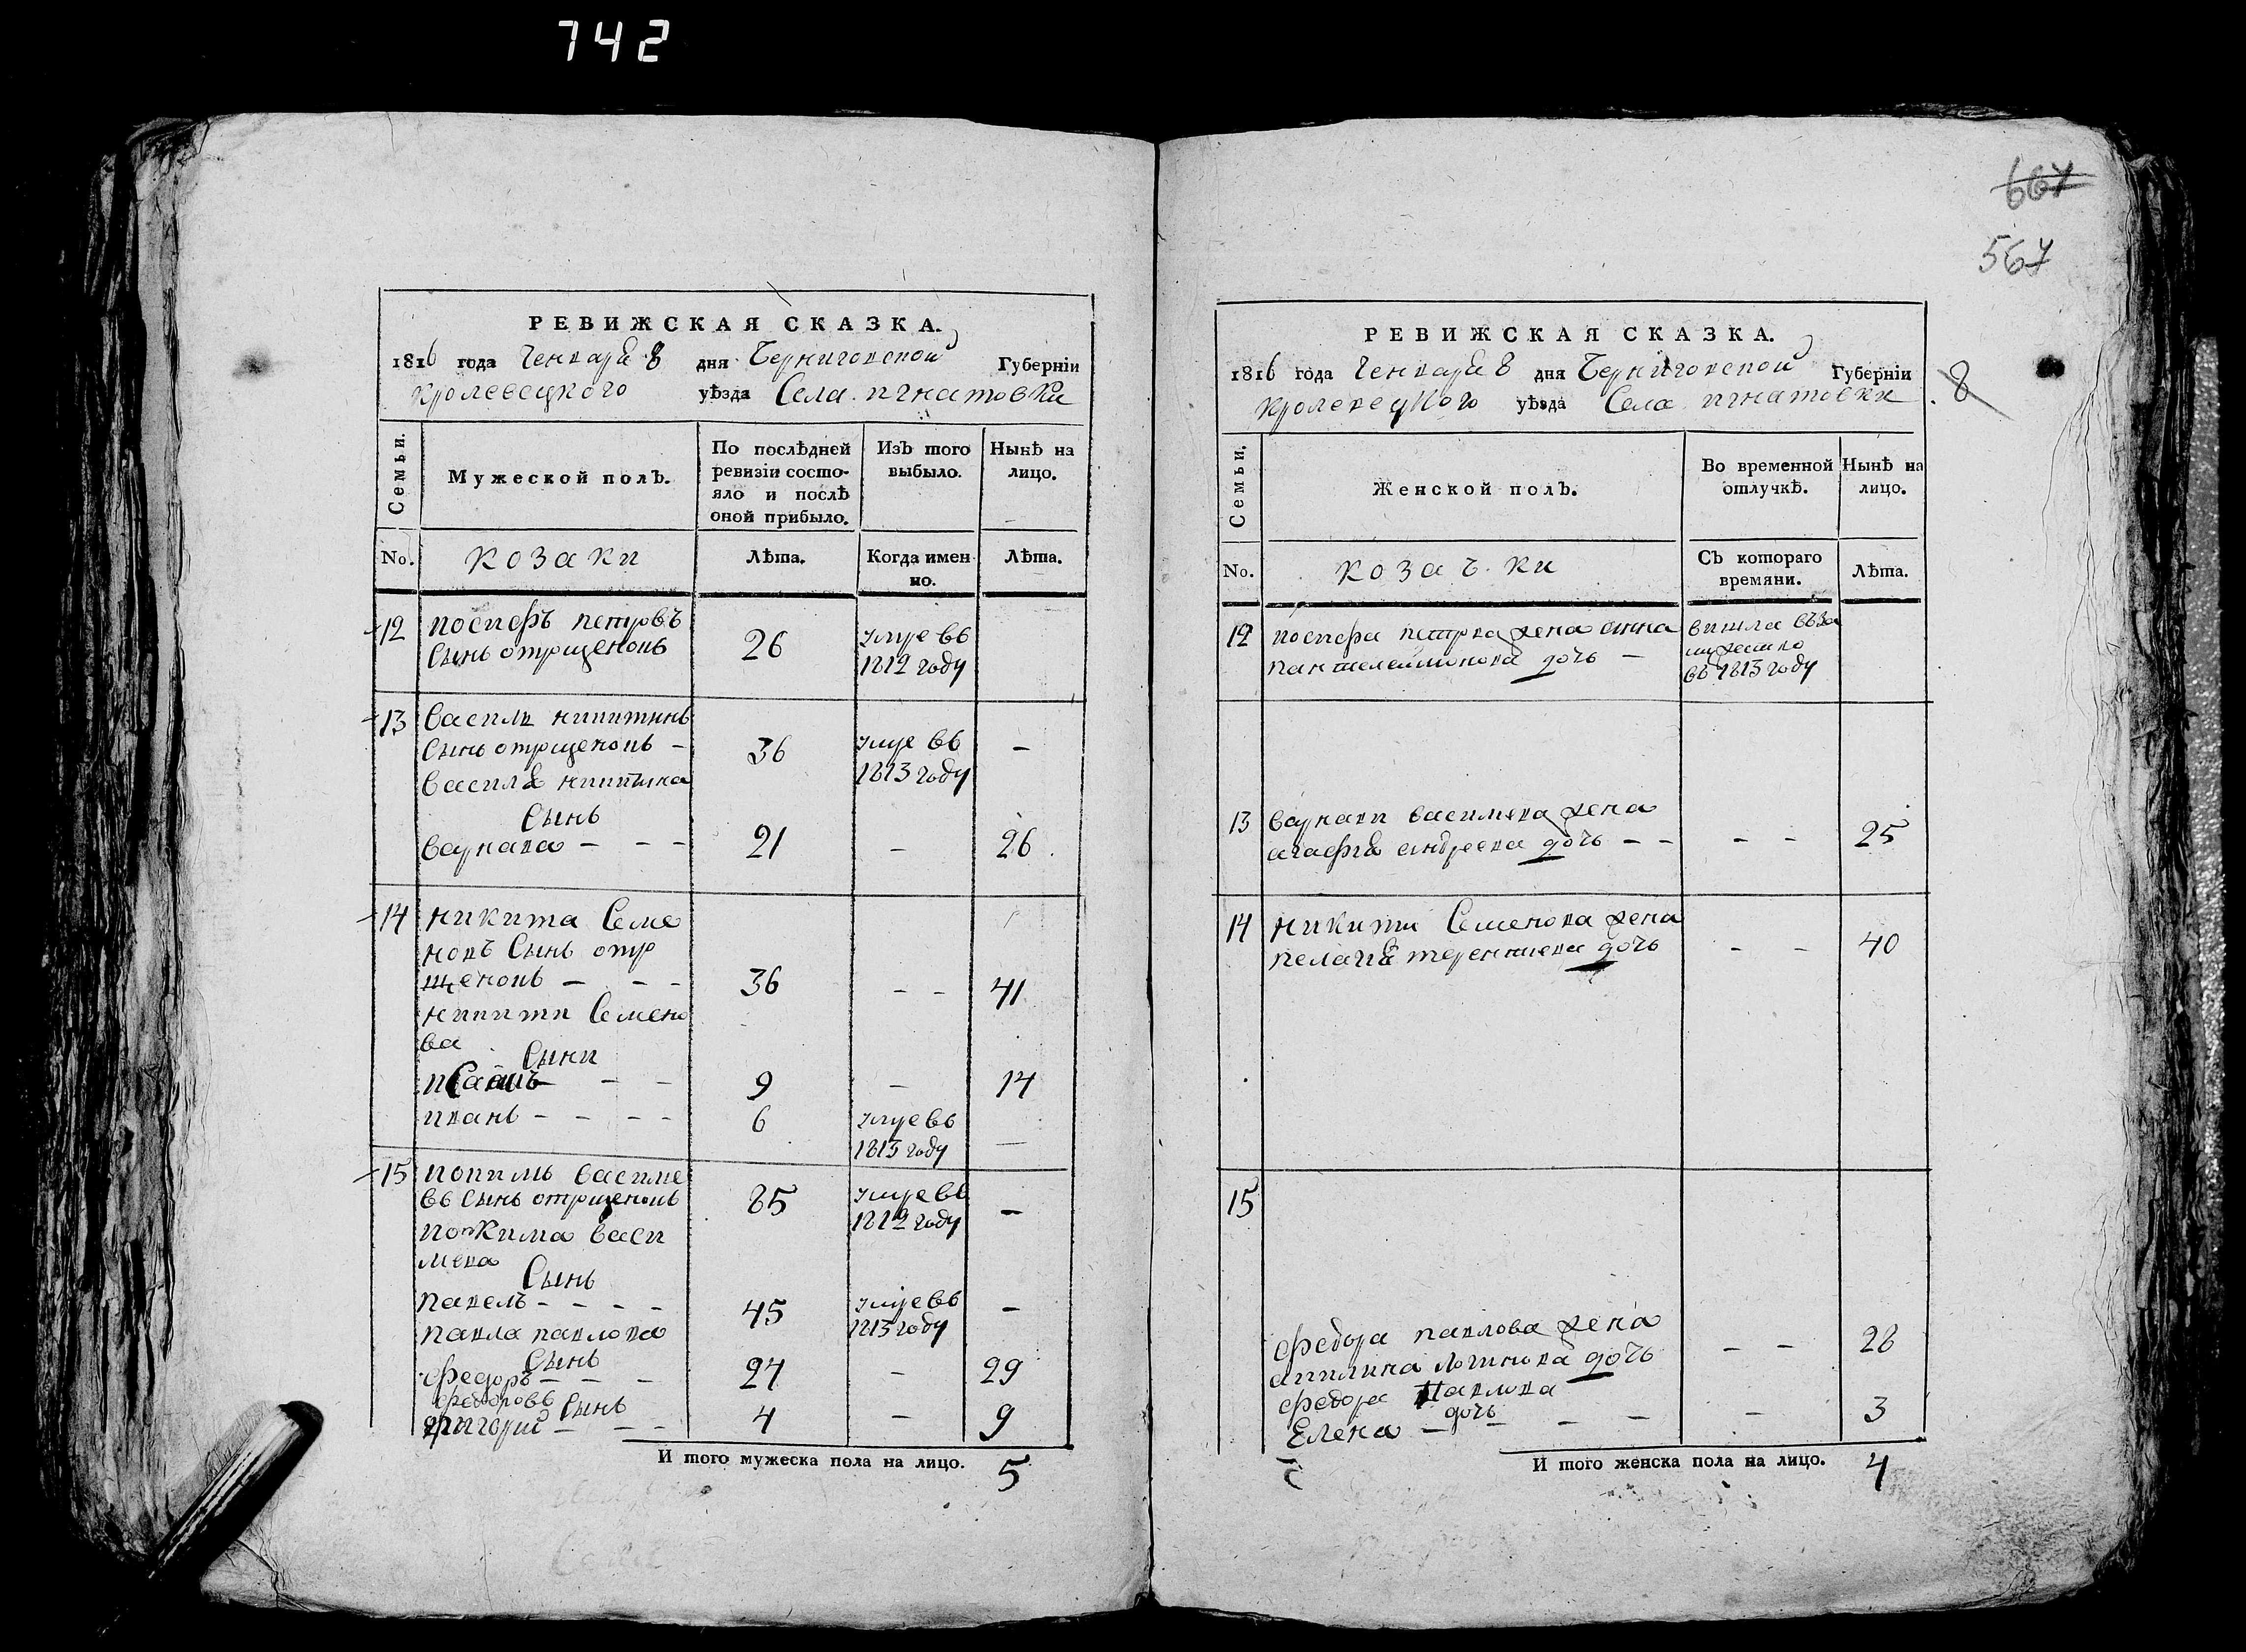 742
667
567
РЕВИЖСКАЯ СКАЗКА.
1816 года Генваря 8 дня Черниговской Губерніи
кролевецкого уѣзда Села игнатовки
Семьи.
Мужеской полъ.
По послѣдней ревизіи состо-
яло и послѣ
оной прибыло.
Изъ того выбыло.
Нынѣ на лицо.
No.
козаки
Лѣта.
Когда имен
но.
Лѣта.
12 иосифъ петровъ
сынъ отрщенокъ 26 умре въ
1812 году
13 василь никитинъ
сынъ отрщенокъ - 36 умре въ
1813 году -
василя никитина
сынъ
варнава - - - 21 - 26
14 никита Семе
новъ сынъ отр
щенокъ - - - 36 - - 41
никити Семено
ва
сыни
- - 9 - 14
иванъ - - - - 6 умре въ
1813 году -
15 василье
въ сынъ отрщенокъ 85 умре въ
1812 году -
васи
лева
сынъ
павелъ - - - - 45 умре въ
1813 году -
павла павлова
сынъ
федоръ - - - 24 - 29
федоровъ сынъ
григорий - - - 4 - 9
И того мужеска пола на лицо. 5
РЕВИЖСКАЯ СКАЗКА.
1816 года Генваря 8 дня Черниговской Губерніи
кролевецкого уѣзда Села игнатовки
8
Семьи.
Женской полъ.
Во временной
отлучкѣ.
Нынѣ на
лицо.
No.
козачки
Съ котораго
времяни.
Лѣта.
12 иосифа петрова жена анна
пантелеимонова дочь - вишла въ за
мужество
въ 1813 году
13 варнави василева жена
агафия андреева дочь - - - - 25
14 никити Семенова жена
пелагия терентиева дочь - - 40
15
федора павлова жена
акилина логинова дочь - - 28
федора павлова
дочь
Елена - - - - 3
И того женска пола на лицо. 4